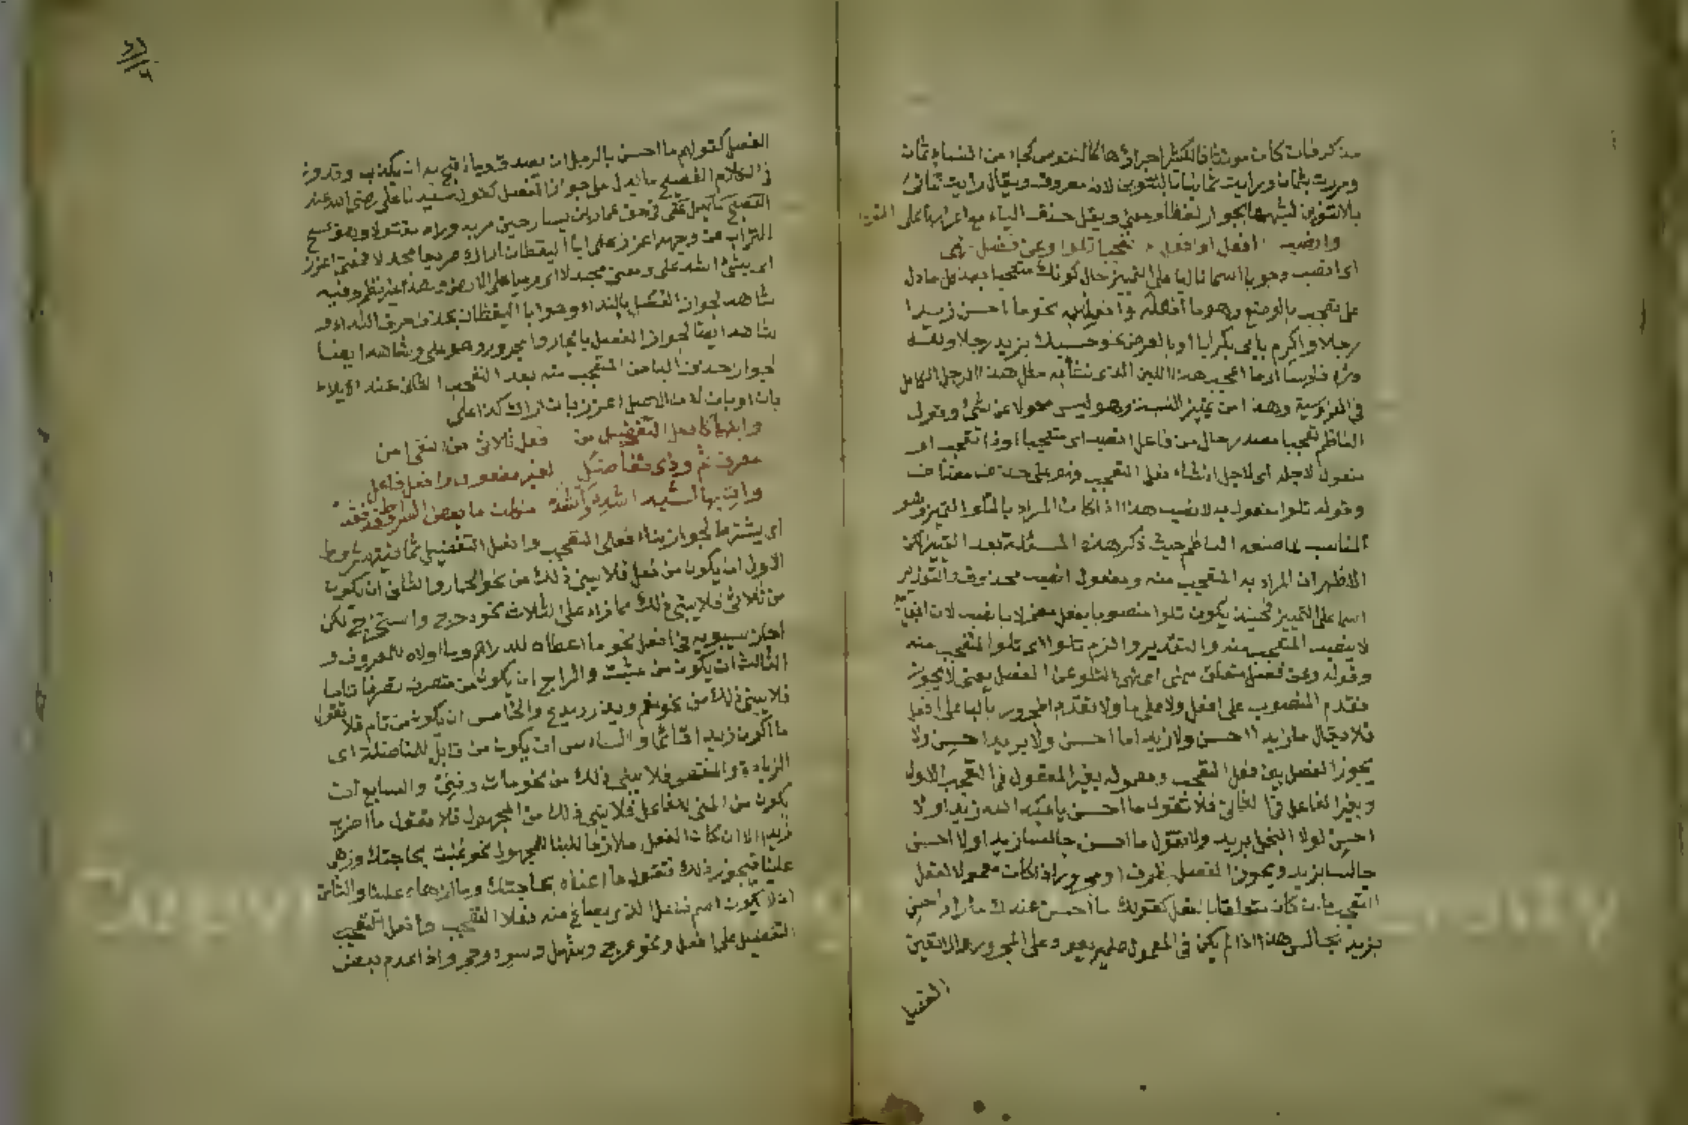 مذكر فان كان مونثا فالكثير اجراؤها كالمنقوص كجاء من النساء ثمان
ومررت بثمان ورايت ثمانيا بالتنوين لانه معروف ويقال رايت ثماني
بلا تنوين لشبهها بجوار لفظا ومعنى ويقل حذف الياء مع اعرابها على النون
وانصب افعل او افعل تعجبا تلوا وعن فصل نهى
اى انصب وجوبا اسما تاليا على التمييز حال كونك متعجبا بفعل دل
على تعجب بالوضع وهو ما افعله وافعل به نحو ما احسن زيدا
رجلا واكرم بابى بكر ابا او بالعرض نحو حسبك بزيد رجلا ولله
دره فارسا اى ما اعجب هذا اللبن الذى نشأ به مثل هذا الرجل الكامل
فى الفروسية وهذا من تمييز النسبة وهو ليس محولا عن شئ وقول
الناظم تعجبا مصدر حال من فاعل انصب اى متعجبا او ذا تعجب او
مفعول لاجله اى لاجل انشاء فعل التعجب وهو على حذف مضاف
وقوله تلوا مفعول به لانصب هذا اذا كان المراد بالتلو التمييز وهو
المناسب لما صنعه الناظم حيث ذكر هذه المسئلة بعد التمييز لكن
الاظهر ان المراد به المتعجب منه ومفعول انصب محذوف والتقدير
اسما على التمييز فحينئذ يكون تلوا منصوبا بفعل مضمر لا بانصب لان
لا ينصب المتعجب منه والتقدير والزم تلوا اى تلوا المتعجب منه
وقوله وعن فصل متعلق بنهى اى نهى التلو عن الفصل يعنى لا يجوز
تقدم المنصوب على افعل ولا على ما ولا تقدم المجرور بالباء على افعل
فلا يقال ما زيدا احسن ولا زيدا ما احسن ولا بزيد احسن ولا
يجوز الفصل بين فعل التعجب ومعموله بغير المفعول فى التعجب الاول
وبغير الفاعل فى الثانى فلا تقول ما احسن يا عبد الله زيدا ولا
احسن لولا البخل بزيد ولا تقول ما احسن جالسا زيدا ولا احسن
جالسا بزيد ويجوز الفصل بظرف او مجرور اذا كان معمولا لفعل
التعجب بان كان متعلقا بالفعل كقولك ما احسن عندك مارا واحسن
بزيد بجالس هذا اذا لم يكن فى المعمول ضمير يعود على المجرور والا تعين
الفصل
الفصل كقولهم ما احسن بالرجل ان يصدق وما اقبح به ان يكذب وقد ورد
فى الكلام الفصيح ما يدل على جواز الفصل كقول سيدنا على رضى الله عنه
فى حق عمار بن ياسر حين مر به وراه مقتولا وهو يمسح
التراب عن وجهه اعزز على ابا اليقظان ان اراك صريعا مجدلا فمعنى اعزز
اى بشئ اشد على ومعنى مجدلا اى مرميا على الارض وهذا غير نظم وفيه
شاهد لجواز الفصل بالنداء وهو ابا اليقظان بحذف حرف النداء و
شاهد ايضا لجواز الفصل بالجار والمجرور وهو على وشاهد ايضا
لجواز حذف الباء من المتعجب منه بعد التعجب
بان او بان لان الاصل اعزز بان اراك كذا على
وابنهما كافعل التفضيل من فعل ثلاثى من النفى امن
معرف تم وذى تفاضل لغير مفعول وافعل فاعل
اى يشترط لجواز بناء افعال التعجب وافعل التفضيل ثمانية شروط
الاول ان يكون من فعل فلا يبنى ذلك من نحو الحمار والثانى ان يكون
من ثلاثى فلا يبنى ذلك مما زاد على الثلاث نحو دحرج واستخرج لكن
اجاز سيبويه فى افعل نحو ما اعطاه للدراهم وما اولاه للمعروف و
الثالث ان يكون من مثبت والرابع ان يكون من متصرف تصرفا تاما
فلا يبنى ذلك من نحو نعم ويذر ويدع والخامس ان يكون من تام فلا تقول
ما اكون زيدا قائما والسادس ان يكون من قابل للمفاضلة اى
الزيادة والنقص فلا يبنى ذلك من نحو مات وفنى والسابع ان
يكون من المبنى للفاعل فلا يبنى ذلك من المجهول فلا تقول ما اضرب
زيدا الا ان كان الفعل ملازما للبناء للمجهول نحو عنيت بحاجتك وزهى
علينا فيجوز ذلك فتقول ما اعناه بحاجتك وما ازهاه علينا والثامن
ان لا يكون اسم فاعل الذى يصاغ منه فعلا التعجب وافعل
التفضيل على افعل نحو عرج وشهل وسود وحمر واذا عدم بعض